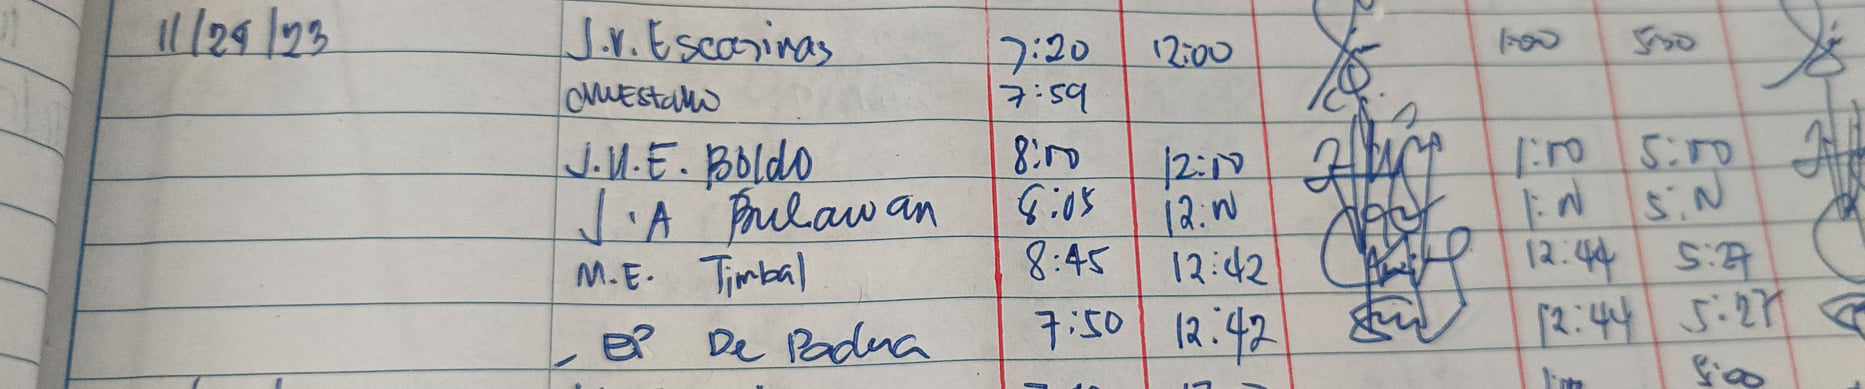 11/29/23 J.V. Escasinas 7:20 12:00 1:00 5:00
7:59
J.U.E. Boldo 8:00 12:00 1:00 5:00
J.A Bulawan 8:05 12:N 1:N 5:N
M.E. Timbal 8:45 12:42 12:44 5:27
EP De Padua 7:50 12:42 12:44 5:27
5:00